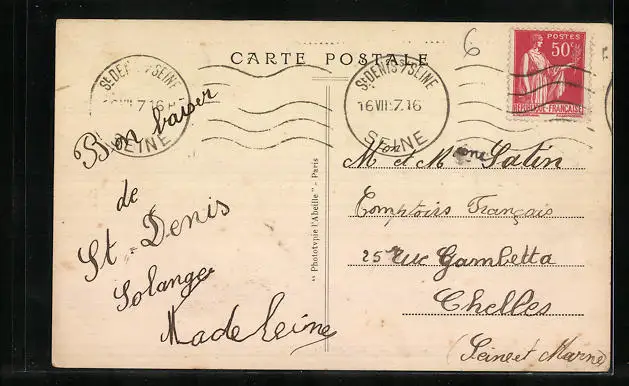 CARTE POSTALE
6
POSTES
50c
RÉPUBLIQUE-FRANÇAISE
St DENIS s/SEINE
16 VII 7.16
SEINE
St DENIS s/SEINE
16 VII 7.16
SEINE
Bon baiser
de
St-Denis
Solange
Madeleine
" Phototypie l'Abeille " - Paris
Mon et Mme Satin
Comptoirs Français
25 rue Gambetta
Chelles
(Seine et Marne)